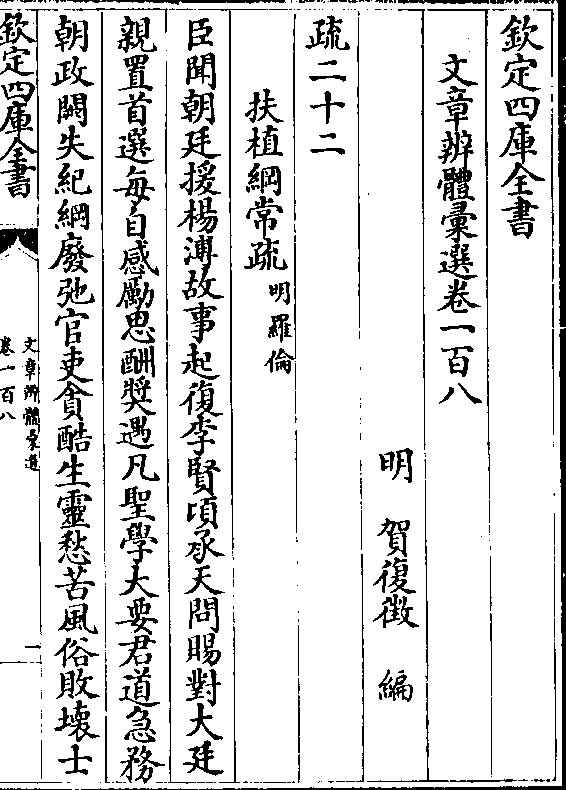 欽定四庫全書
文章辨體彚選卷一百八
明 賀復徵 編
疏二十二
扶植綱常疏 明羅倫
臣聞朝廷援楊溥故事起復李賢頃承天問賜對大廷
親置首選每自感勵思酬奬遇凡聖學大要君道急務
朝政闕失紀綱廢弛官吏貪酷生靈愁苦風俗敗壊士
欽定四庫全書
文章辨體彚選
卷一百八
一